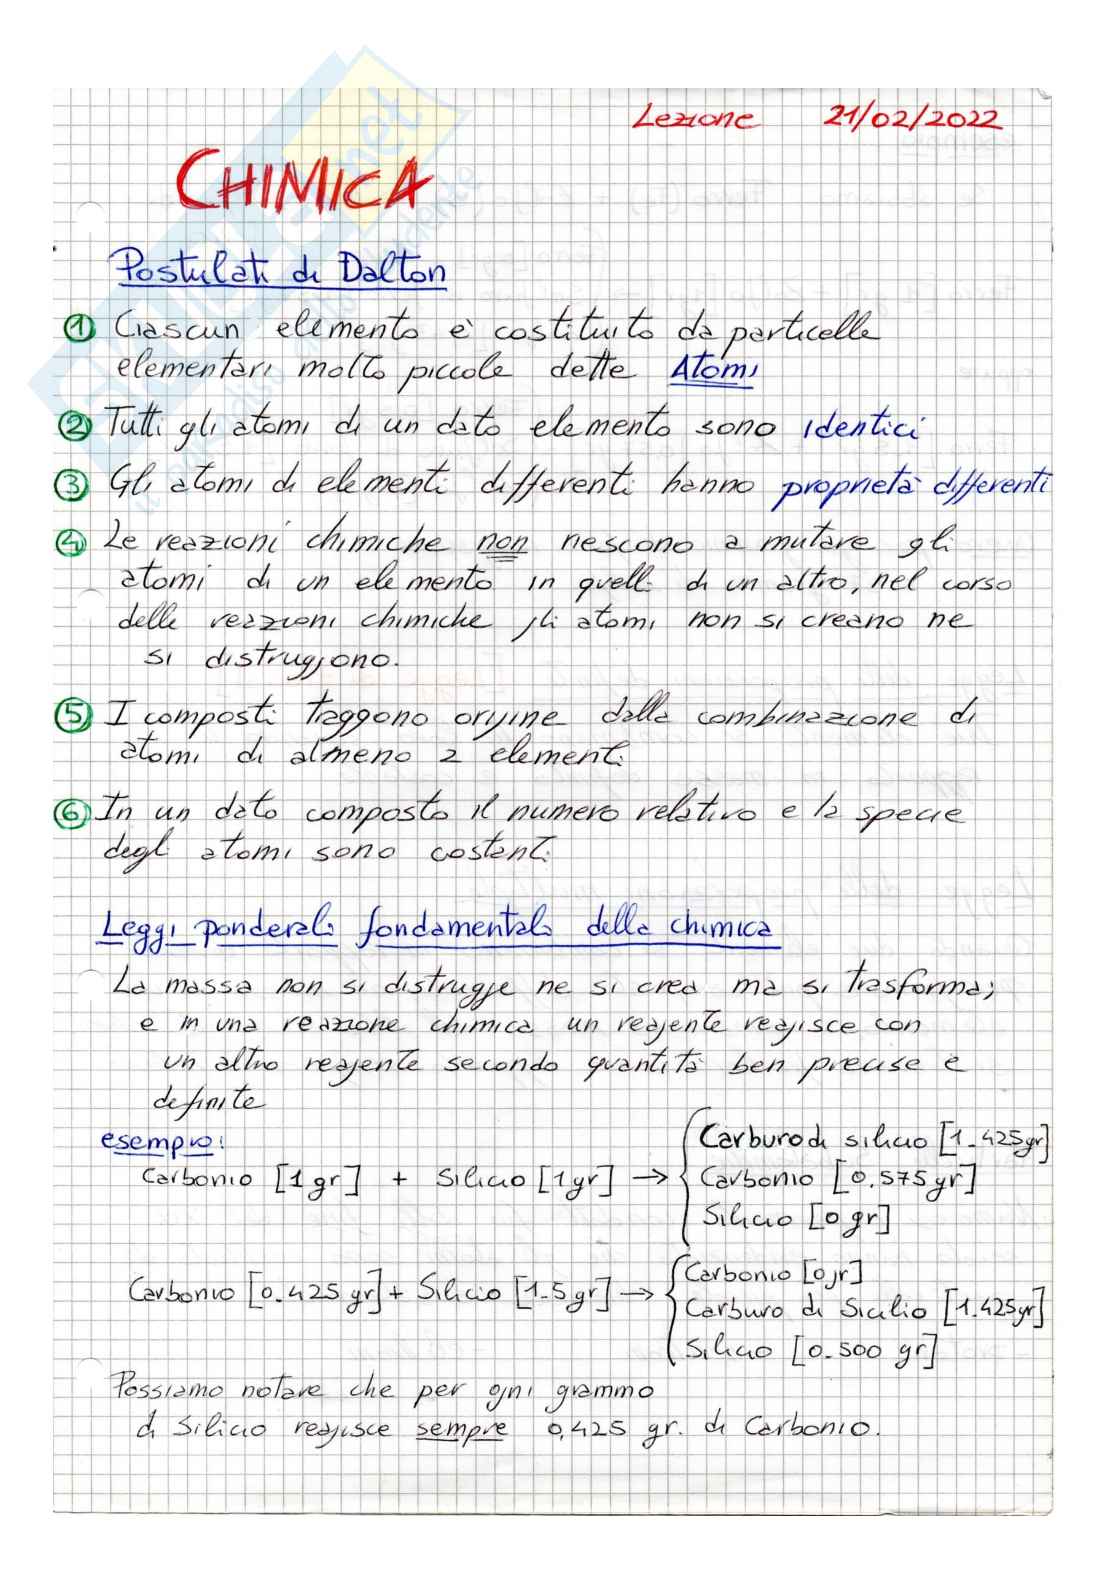 Lezione 21/02/2022
CHIMICA
Postulati di Dalton
① Ciascun elemento è costituito da particelle
elementari molto piccole dette Atomi
② Tutti gli atomi di un dato elemento sono identici
③ Gli atomi di elementi differenti hanno proprietà differenti
④ Le reazioni chimiche non riescono a mutare gli
atomi di un elemento in quelli di un altro, nel corso
delle reazioni chimiche gli atomi non si creano ne
si distruggono.
⑤ I composti traggono origine dalla combinazione di
atomi di almeno 2 elementi
⑥ In un dato composto il numero relativo e la specie
degli atomi sono costanti
Leggi ponderali fondamentali della chimica
La massa non si distrugge ne si crea ma si trasforma;
e in una reazione chimica un reagente reagisce con
un altro reagente secondo quantità ben precise e
definite
esempio:
Carbonio [1 gr] + Silicio [1 gr] → { Carburo di silicio [1.425 gr]
Carbonio [0.575 gr]
Silicio [0 gr]
Carbonio [0.425 gr] + Silicio [1.5 gr] → { Carbonio [0 gr]
Carburo di Sicilio [1.425 gr]
Silicio [0.500 gr]
Possiamo notare che per ogni grammo
di Silicio reagisce sempre 0,425 gr. di Carbonio.